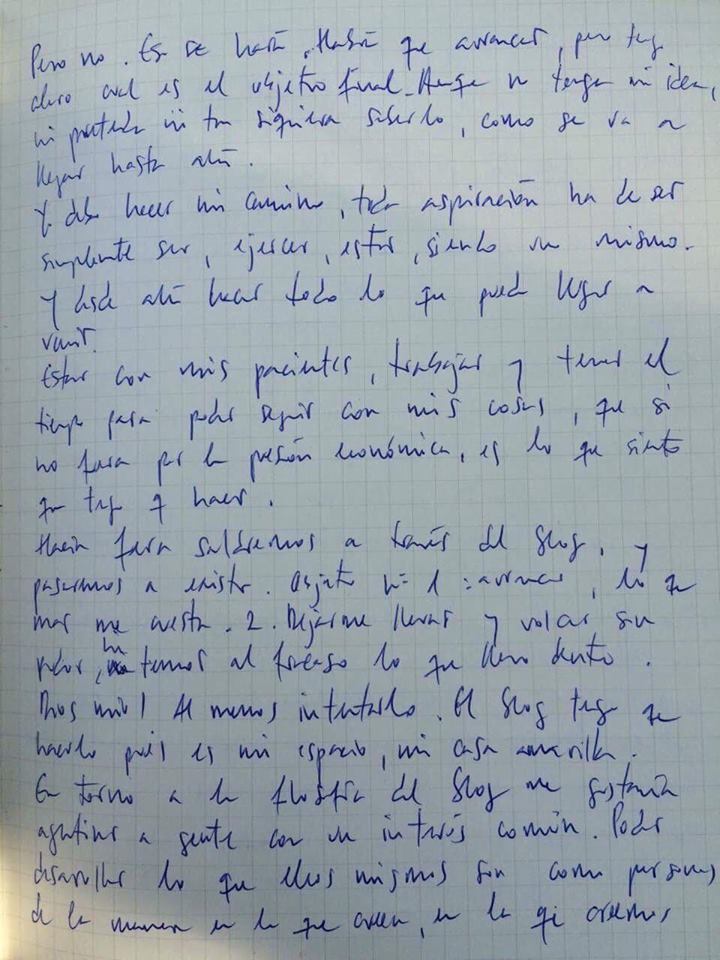 Pero no. Eso se hará. Habrá que avanzar, pero tengo
claro cual es el objetivo final. Aunque no tenga ni idea,
ni pretenda ni tan siquiera saberlo, como se va a
llegar hasta ahí.
Y debo hacer mi camino, toda aspiración ha de ser
simplemente ser, ejercer, estar, siendo uno mismo.
Y desde ahí hacer todo lo que pueda llegar a
venir.
Estar con mis pacientes, trabajar y tener el
tiempo para poder seguir con mis cosas, que si
no fuera por la presión económica, es lo que siento
que tengo q hacer.
Hacia fuera saldremos a través del Blog, y
pasaremos a existir. Objetivo nº 1: avanzar, lo que
mas me cuesta. 2. Dejarme llevar y volcar sin
pudor, ni temor al fracaso lo que llevo dentro.
Dios mio! Al menos intentarlo. El Blog tengo que
hacerlo pues es mi espacio, mi casa amarilla.
En torno a la filosofía del Blog me gustaría
aglutinar a gente con un interés común. Poder
desarrollar lo que ellos mismos son como personas
de la manera en la que creen, en la que creemos